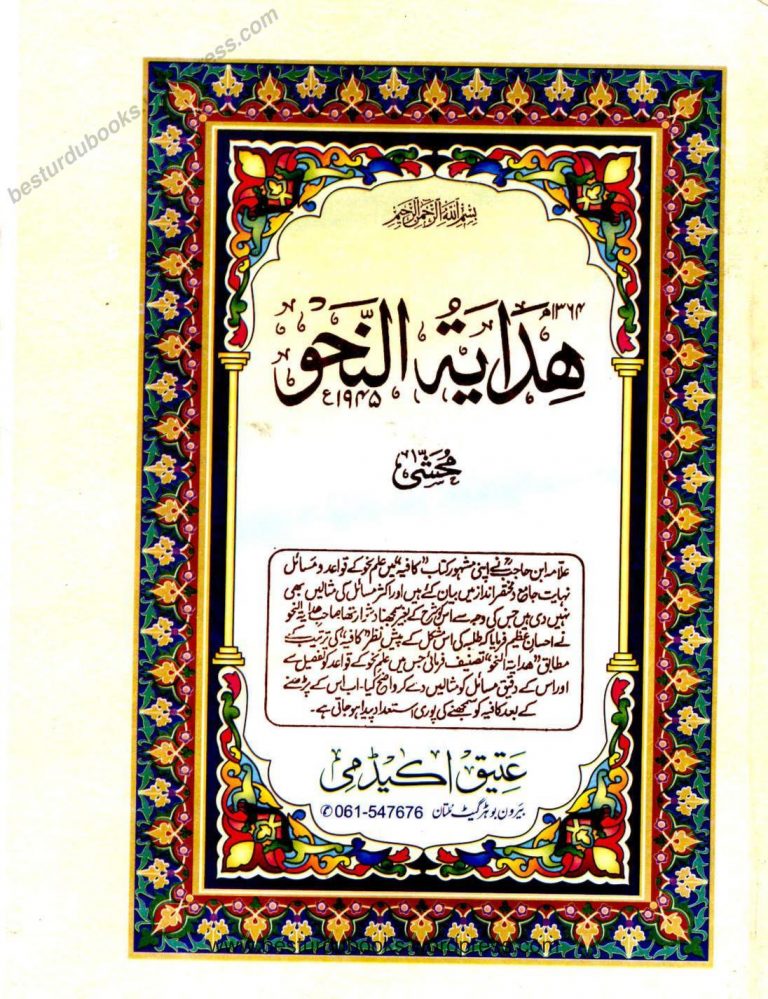 besturdubooks.wordpress.com
بسم الله الرحمن الرحيم
۱۳۶۴ھ
هِدَايَةُ النَّحو
۱۹۴۵ء
مُحَشّٰی
علامہ ابن حاجبؒ نے اپنی مشہور کتاب "کافیہ" میں علم نحو کے قواعد و مسائل
نہایت جامع و مختصر انداز میں بیان کئے ہیں اور اکثر مسائل کی مثالیں بھی
نہیں دی ہیں جس کی وجہ سے اس کو شرح کے بغیر سمجھنا دشوار تھا صاحب ھدایۃ النحو
نے احسان عظیم فرمایا کہ طلبہ کی اس مشکل کے پیش نظر "کافیہ" ہی کی ترتیب کے
مطابق "ھدایۃ النحو" تصنیف فرمائی جس میں علم نحو کے قواعد کو تفصیل سے
اور اس کے دقیق مسائل کو مثالیں دے کر واضح کیا۔ اب اس کے پڑھنے
کے بعد کافیہ کو سمجھنے کی پوری استعداد پیدا ہو جاتی ہے۔
عتیق اکیڈمی
بیرون بوہڑ گیٹ ملتان 061-547676 ✆
www.besturdubooks.wordpress.com